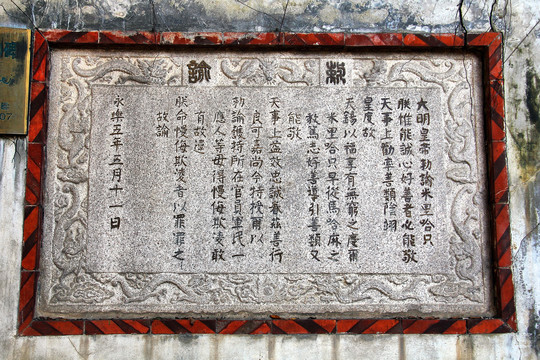 敕諭
大明皇帝勅諭米里哈只
朕惟能誠心好善者必能敬
天事上勸率善類陰翊
皇度故
天錫以福享有無窮之慶爾
米里哈只早從馬哈麻之
教篤志好善導引善類又
能敬
天事上益效忠誠眷茲善行
良可嘉尚今特授爾以
勅諭護持所在官員軍民一
應人等毋得慢侮欺凌敢
有故違
朕命慢侮欺凌者以罪罪之
故諭
永樂五年五月十一日
07